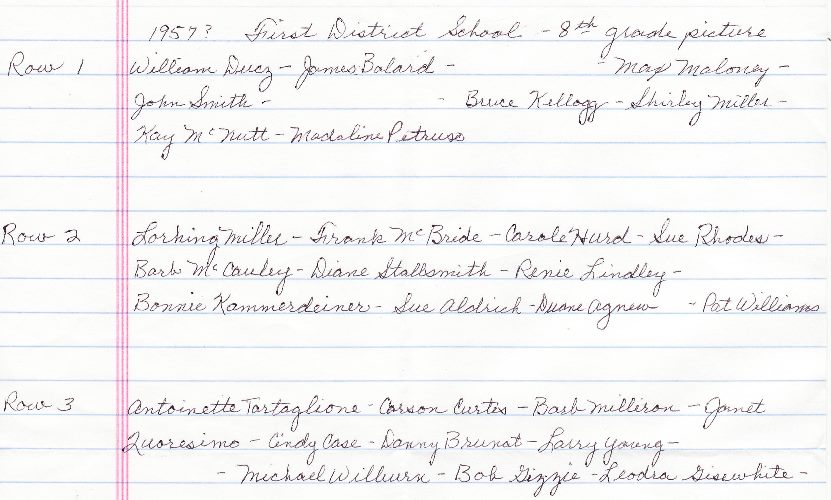 1957? First District School - 8th grade picture
Row 1 William Ducz - James Balard - - Max Maloney -
John Smith - - Bruce Kellogg - Shirley Miller -
Kay McNutt - Madaline Petruso
Row 2 Miller - Frank McBride - Carole Hurd - Sue Rhodes -
Barb McCauley - Diane Stallsmith - Renie Lindley -
Bonnie Kammerdeiner - Sue Aldrich - Duane Agnew - Pat Williams
Row 3 Antoinette Tartaglione - Carson Curtis - Barb Milliron - Janet
Quoresimo - Cindy Case - Danny Brunot - Larry Young -
- Michael Wilburn - Bob Gizzie - Leodra Gisewhite -